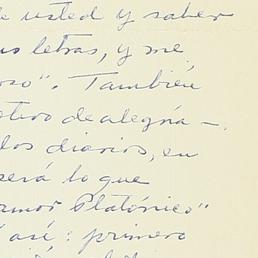 de usted y saber
sus letras, y me
oso". También
motivo de alegría —
los diarios, en
será lo que
amor Platónico"
así: primero